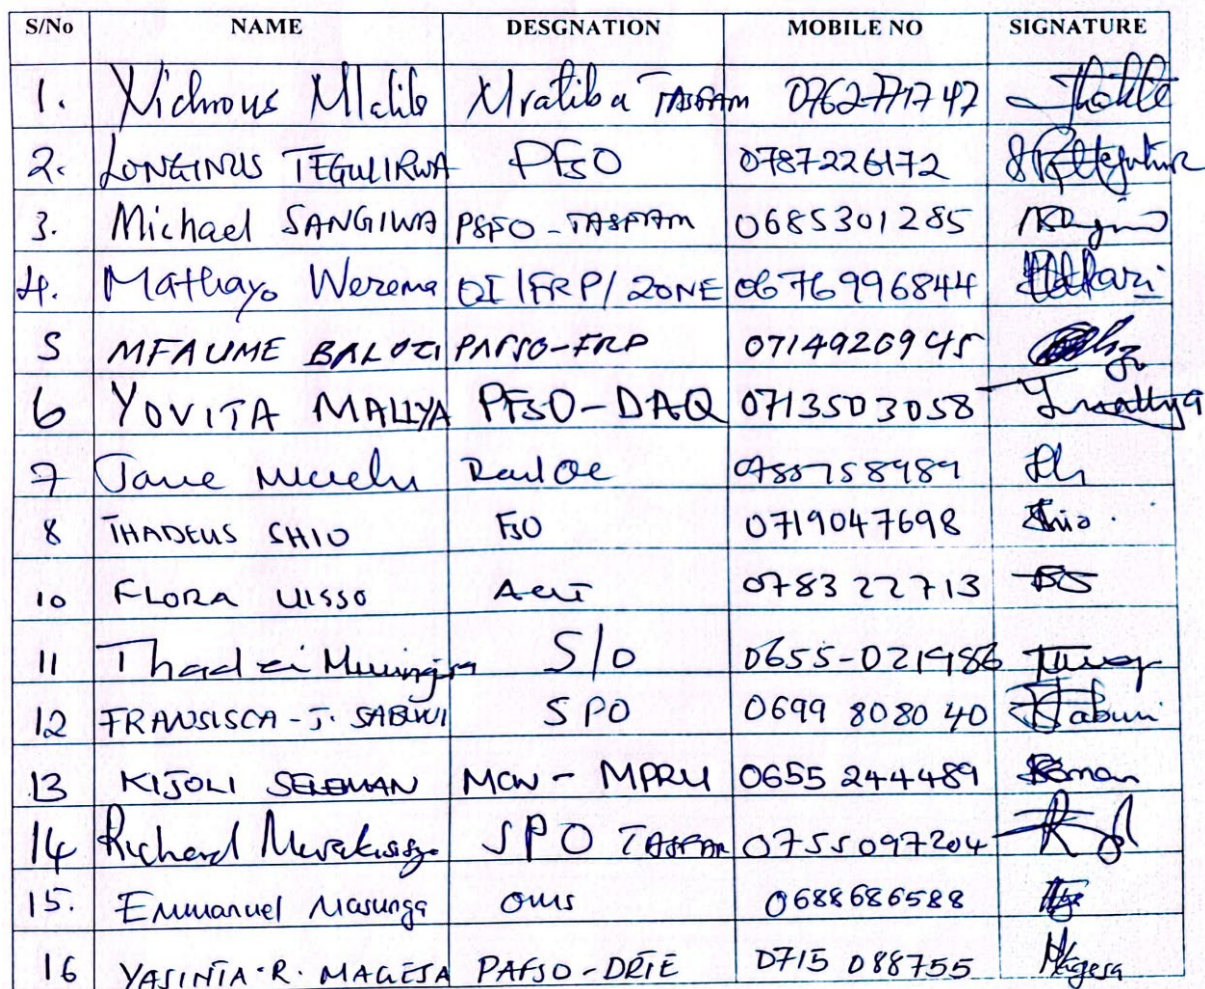 S/No NAME DESGNATION MOBILE NO SIGNATURE
1. Mratiba TASFAM
2. LONGINUS TEGULIRWA PFSO 0787226172
3. Michael SANGIWA PSFO - TASFAM 0685301285
4. Mathayo Werema OI/FRP/ZONE 0676996844
5 MFAUME BALOZI PAFSO-FRP 0714926945
6 YOVITA MALLYA PFSO-DAQ 0713503058
7 Jane
8 THADEUS SHIO FSO 0719047698
10 FLORA UISSO 0783 22713
11 S/O 0655-021986
12 FRANSISCA - J. SABUNI SPO 0699 8080 40
13 KIJOLI SELEMAN MCW - MPRU 0655 244489
14 Richard SPO TASFAM 0755097204
15. Emmanuel Masunga OMS 0688686588
16 YASINTA.R. MAGESA PAFSO-DRTE 0715 088755 Magesa